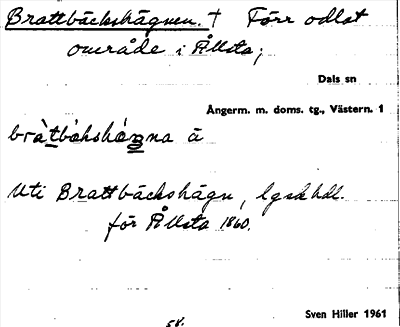 Brattbäckshägnen. † Förr odlat
område i Ållsta;
Dals sn
Ångerm. m. doms. tg., Västern. 1
ā
Uti Brattbäckshägn, lgskhdl.
för Ållsta 1860.
Sven Hiller 1961